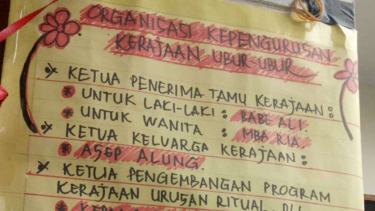 ORGANISASI KEPENGURUSAN
KERAJAAN UBUR-UBUR
* KETUA PENERIMA TAMU KERAJAAN :
* UNTUK LAKI-LAKI : BABE ALI.
* UNTUK WANITA : MBA RIA.
* KETUA KELUARGA KERAJAAN :
* ASEP ALUNG.
* KETUA PENGEMBANGAN PROGRAM
KERAJAAN URUSAN RITUAL,